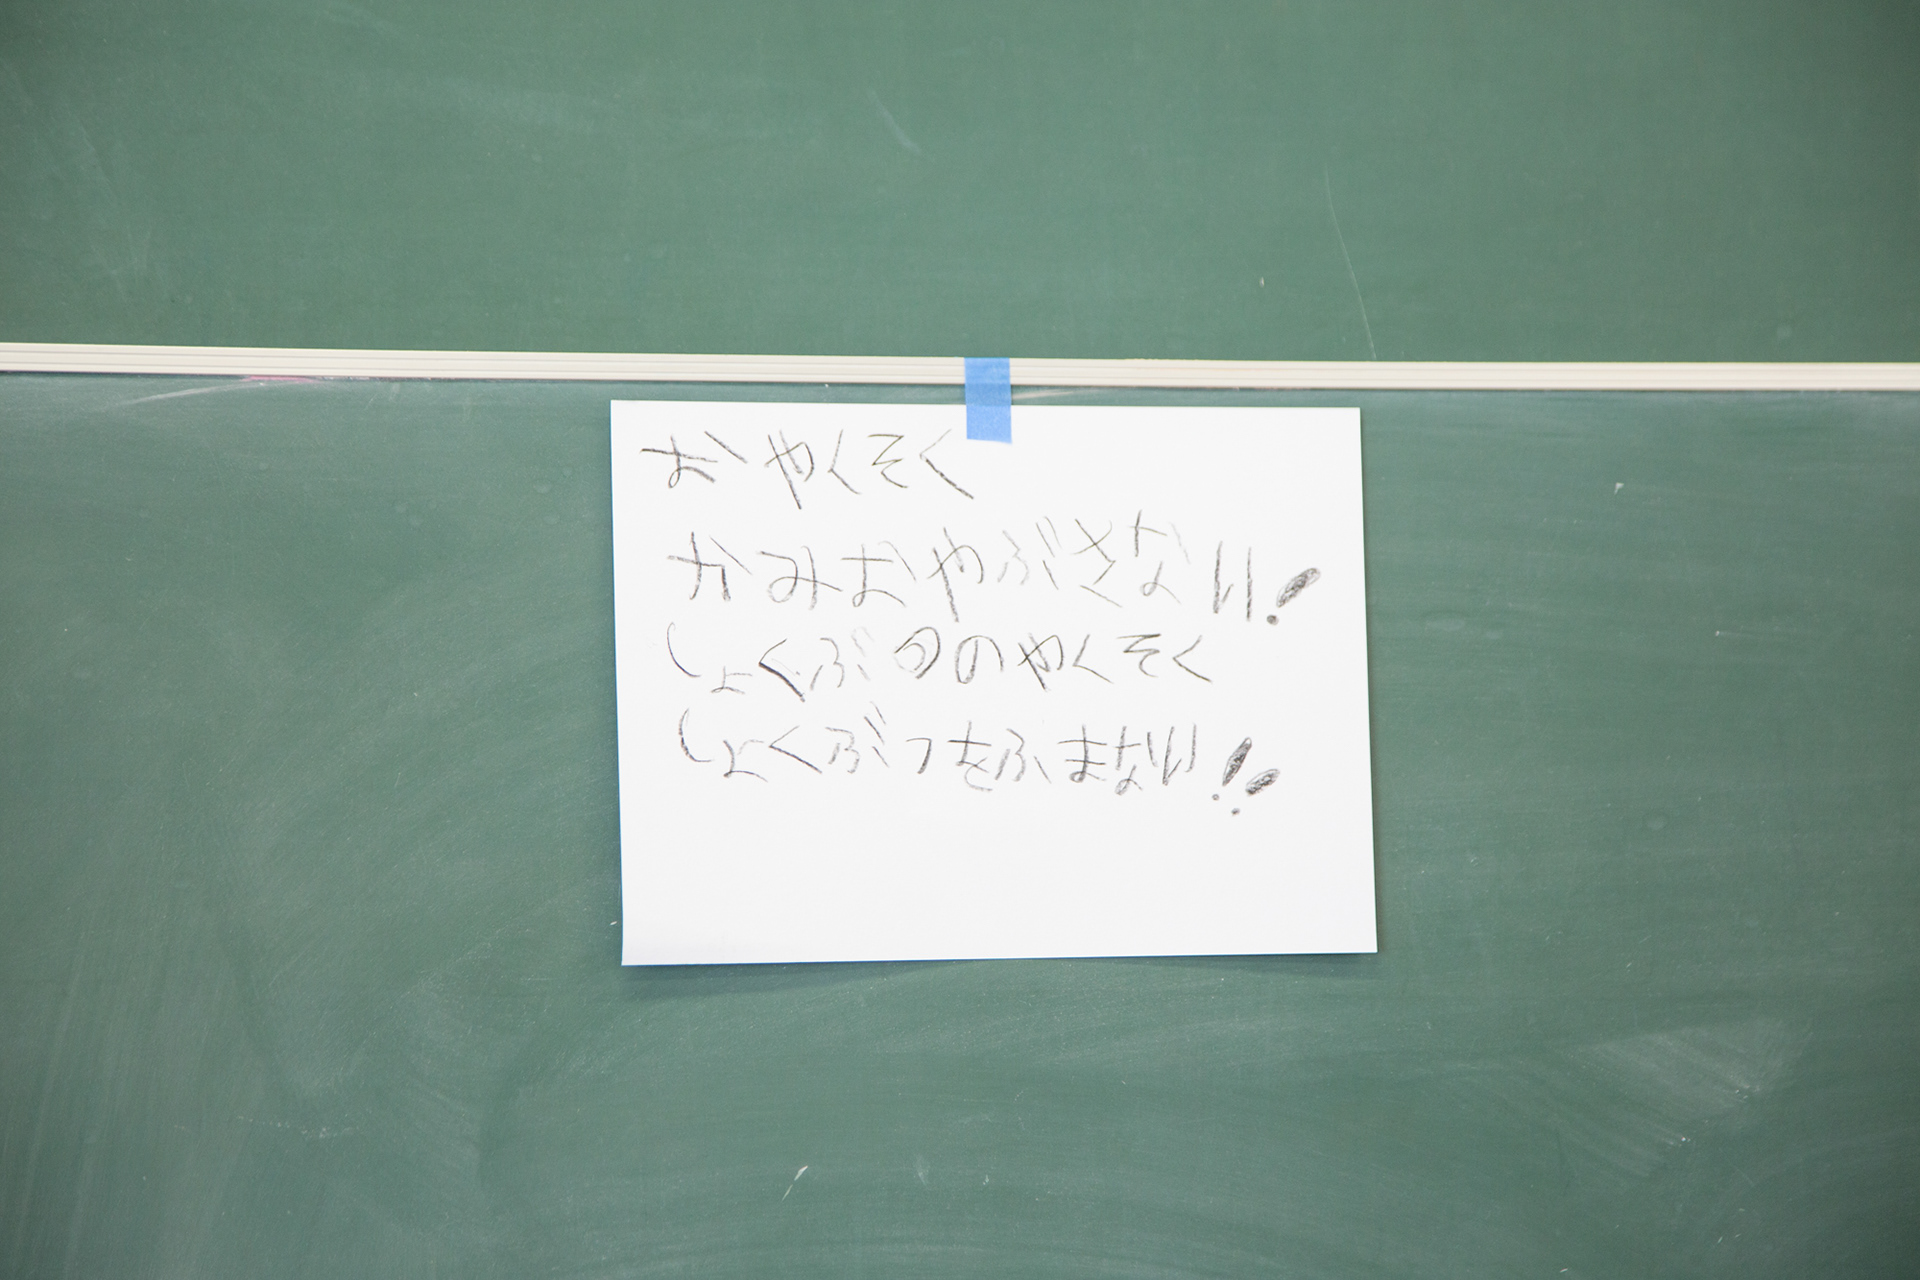 おやくそく
かみおやぶさない!
しょくぶつのやくそく
しょくぶつをふまない!!